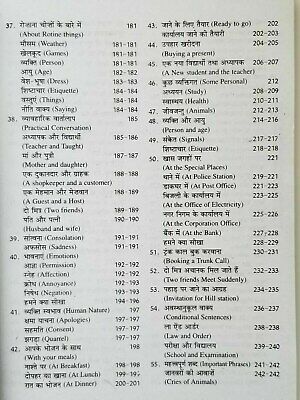 37. रोज़ाना चीज़ों के बारे में 181
(About Rotine things)
मौसम (Weather) 181-181
खेलकूद (Games) 181-181
व्यक्ति (Person) 181-181
आयु (Age) 182-182
वेश-भूषा (Dress) 182-183
शिष्टाचार (Etiquette) 183-184
वस्तुएं (Things) 184-184
नीति वाक्य (Saying) 184-184
38. व्यावहारिक वार्तालाप 185
(Practical Conversation)
अध्यापक और विद्यार्थी 185-186
(Teacher and Taught)
मां और पुत्री 187-187
(Mother and daughter)
एक दुकानदार और ग्राहक 188-188
(A shopkeeper and a customer)
एक मेहमान और मेज़बान 188-189
(A Guest and a Host)
दो मित्र (Two friends) 189-189
पति और पत्नी 190-190
(Husband and wife)
39. सांत्वना (Consolation) 191-191
अफसोस (Sadness) 191-191
40. भावनाएं (Emotions) 192-192
आज्ञा (Permission) 192-192
स्नेह (Affection) 192-192
क्रोध (Annoyance) 192-193
निषेध (Negation) 193-193
हमने क्या सीखा 194-196
41. व्यक्ति स्वभाव (Human Nature) 197
क्षमा याचना (Apologies) 197-197
सहमति (Consent) 197-197
झगड़ा (Quarrel) 197-197
42. आपके भोजन के साथ 198
(With your meals)
नाश्ते पर (At Breakfast) 198-198
दोपहर का खाना (At Lunch) 199-199
रात का भोजन (At Dinner) 200-201
43. जाने के लिए तैयार (Ready to go) 202
कार्यालय जाने की तैयारी 202-203
44. उपहार खरीदना 204-205
(Buying a present)
45. एक नया विद्यार्थी तथा अध्यापक 206-207
(A New student and the teacher)
46. कुछ व्यक्तिगत (Some Personal) 208
अध्ययन (Study) 208-209
स्वास्थ्य (Health) 210-211
जानवर (Animals) 212-213
47. खेल (Games) 213-214
48. व्यक्ति और आयु 214-216
(Person and age)
49. संकेत (Signals) 216-217
शिष्टाचार (Etiquette) 218-218
50. खास जगहों पर 221
(At the Special Places)
थाने में (At Police Station) 221-221
डाकघर में (At Post Office) 221-222
बिजली के कार्यालय में 222-224
(At the Office of Electricity)
नगर निगम के कार्यालय में 225-226
(At the Corporation Office)
बैंक में (At the Bank) 227-227
हमने क्या सीखा 228-229
51. ट्रंक काल बुक करवाना 230-231
(Booking a Trunk Call)
52. दो मित्र अचानक मिल जाते हैं 232-233
(Two friends Meet Suddenly)
53. पहाड़ पर जाने का आग्रह 234-235
(Invitation for Hill station)
54. अवस्थानुकूल वाक्य 236-237
(Conditional Sentences)
ला एंड आर्डर 238-238
(Law and Order)
परीक्षा और विद्यालय 239-240
(School and Examination)
55. महत्वपूर्ण शब्द (Important Phrases) 241
जानवरों की आवाजें 242-242
(Cries of Animals)